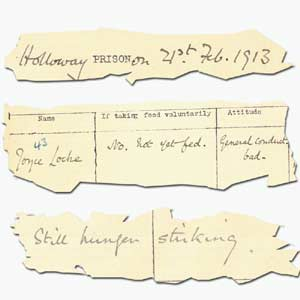 Holloway PRISON on 21st Feb. 1913
Name If taking food voluntarily Attitude
43
Joyce Locke No. Not yet fed. General conduct
bad.
Still hunger striking.